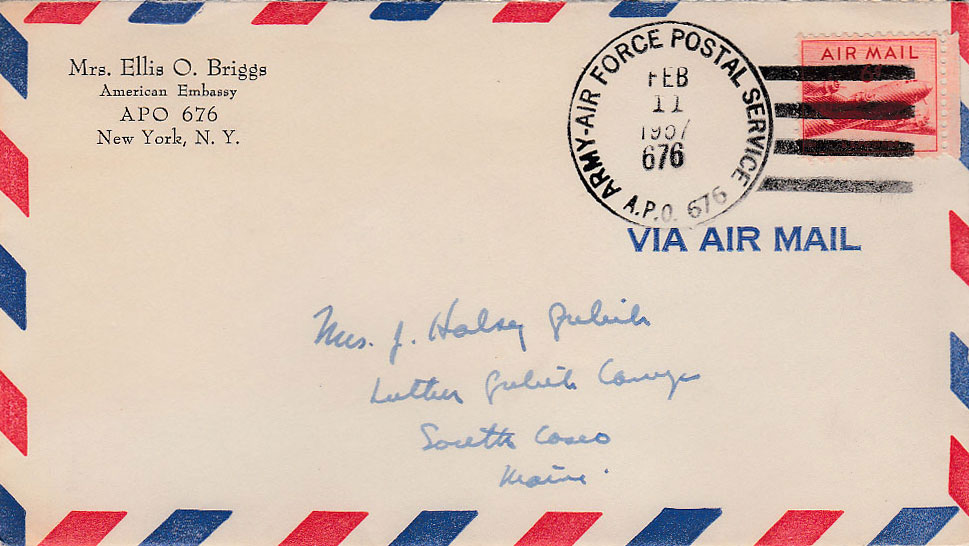 Mrs. Ellis O. Briggs
American Embassy
APO 676
New York, N. Y.
ARMY-AIR FORCE POSTAL SERVICE
FEB
11
1957
676
A.P.O. 676
AIR MAIL
6¢
VIA AIR MAIL
Mrs. J. Halsey Gulick
Luther Gulick Camps
South Casco
Maine.